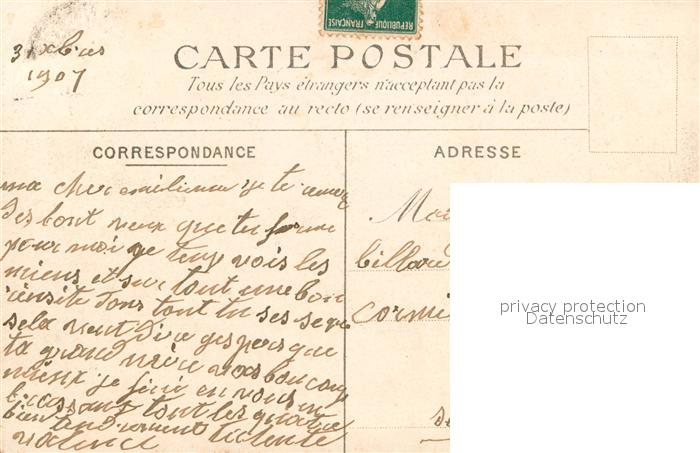 RÉPUBLIQUE FRANÇAISE
3 xbres
1907
CARTE POSTALE
Tous les Pays étrangers n'acceptant pas la
correspondance au recto (se renseigner à la poste)
CORRESPONDANCE
ADRESSE
ma cher emilienne je te remer
des bont veux que tu forme
pour moi je tenvois les
miens et sur tout une bon
tout tu ses se que
sela veut dire jespers que
ta grand mère vas boucoup
mieux je fini en vous en
tout les quatre
bien
valence
Mad
billard
Cormei
privacy protection
Datenschutz